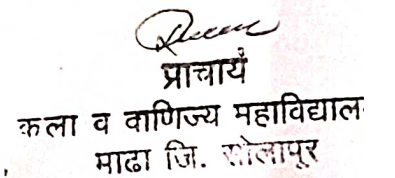 प्राचार्य
कला व वाणिज्य महाविद्याल
माढा जि. सोलापूर